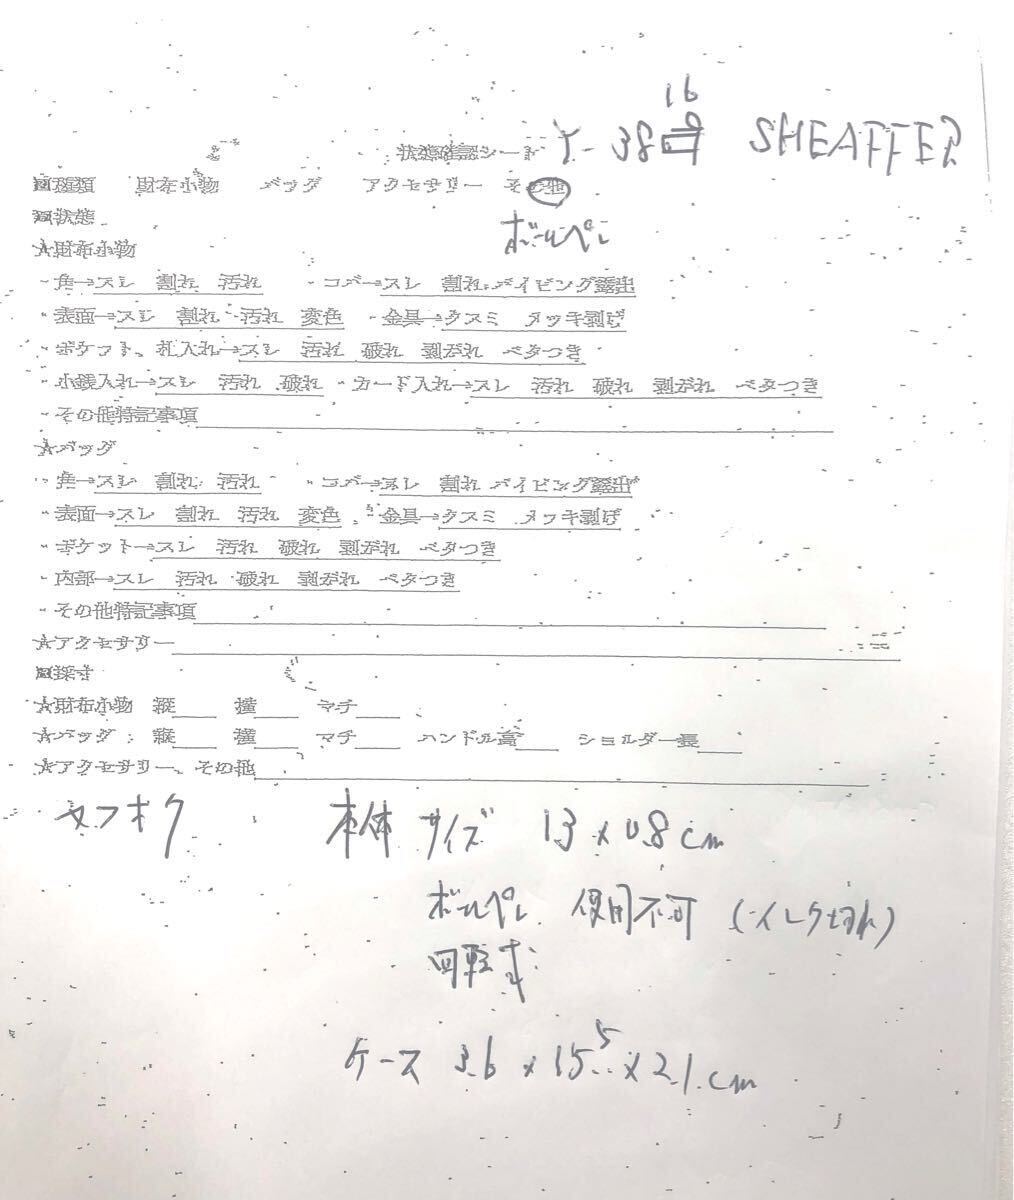 16
状態確認シート Y-38 SHEAFFER
■種類 財布小物 バッグ アクセサリー その他
ボールペン
■状態
★財布小物
・角→スレ 割れ 汚れ ・コバ→スレ 割れ パイピング露出
・表面→スレ 割れ 汚れ 変色 ・金具→クスミ メッキ剥げ
・ポケット、札入れ→スレ 汚れ 破れ 剥がれ ベタつき
・小銭入れ→スレ 汚れ 破れ ・カード入れ→スレ 汚れ 破れ 剥がれ ベタつき
・その他特記事項
★バッグ
・角→スレ 割れ 汚れ ・コバ→スレ 割れ パイピング露出
・表面→スレ 割れ 汚れ 変色 ・金具→クスミ メッキ剥げ
・ポケット→スレ 汚れ 破れ 剥がれ ベタつき
・内部→スレ 汚れ 破れ 剥がれ ベタつき
・その他特記事項
★アクセサリー
■採寸
★財布小物 縦 横 マチ
★バッグ: 縦 横 マチ ハンドル高 ショルダー長
★アクセサリー、その他
ヤフオク 本体サイズ 13×0.8cm
ボールペン 使用不可 (インク切れ)
回転式
ケース 3.6×15.5×2.1cm